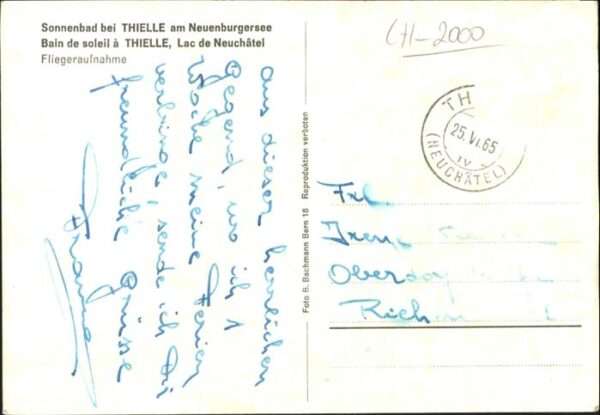 Sonnenbad bei THIELLE am Neuenburgersee
Bain de soleil à THIELLE, Lac de Neuchâtel
Fliegeraufnahme
aus dieser herrlichen
Gegend, wo ich 1
Woche meine Ferien
verbringe, sende ich Dir
freundliche Grüsse
CH-2000
TH
25.VI.65
IV
(NEUCHÂTEL)
Foto B. Bachmann Bern 18 Reproduktion verboten
Frl.
Irene
Oberdorf